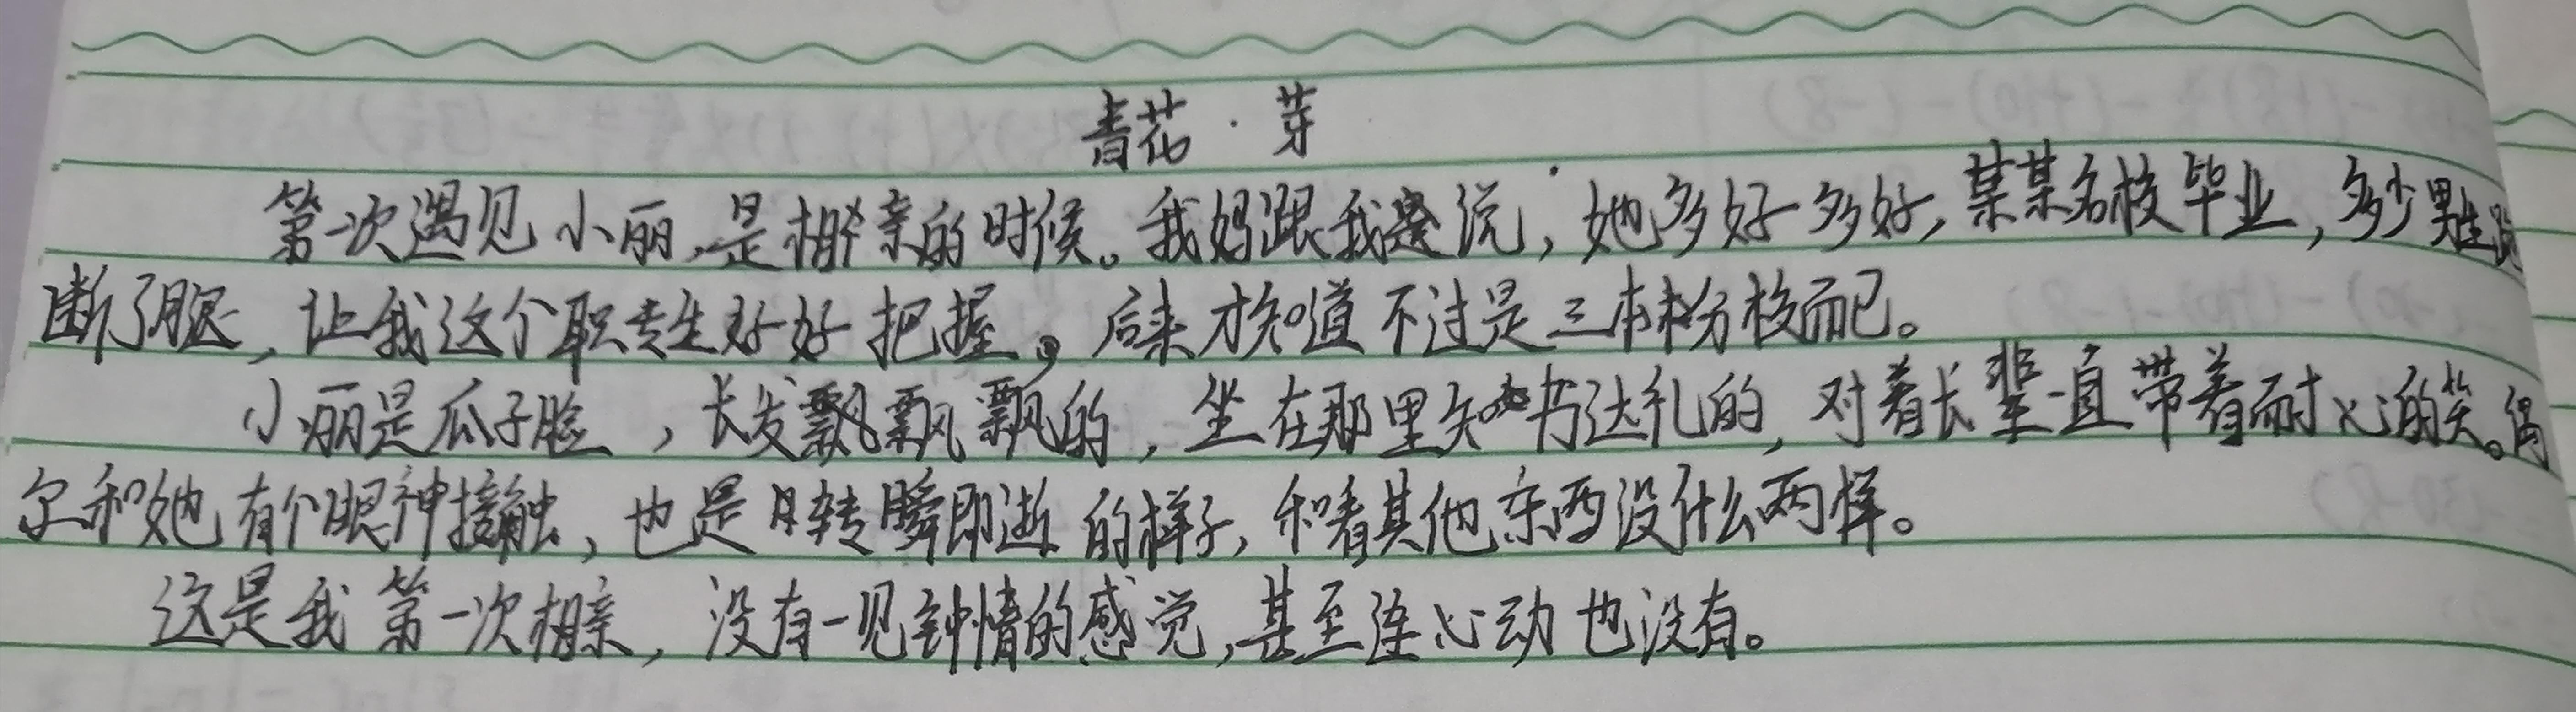 青花·芽
第一次遇见小丽,是相亲的时候。我妈跟我说,她多好多好,某某名校毕业,多少男生跑
断了腿,让我这个职专生好好把握。后来才知道不过是三本分校而已。
小丽是瓜子脸,长发飘飘飘的,坐在那里知书达礼的,对着长辈一直带着耐心的笑。偶
尔和她有个眼神接触,也是转瞬即逝的样子,和看其他东西没什么两样。
这是我第一次相亲,没有一见钟情的感觉,甚至连心动也没有。